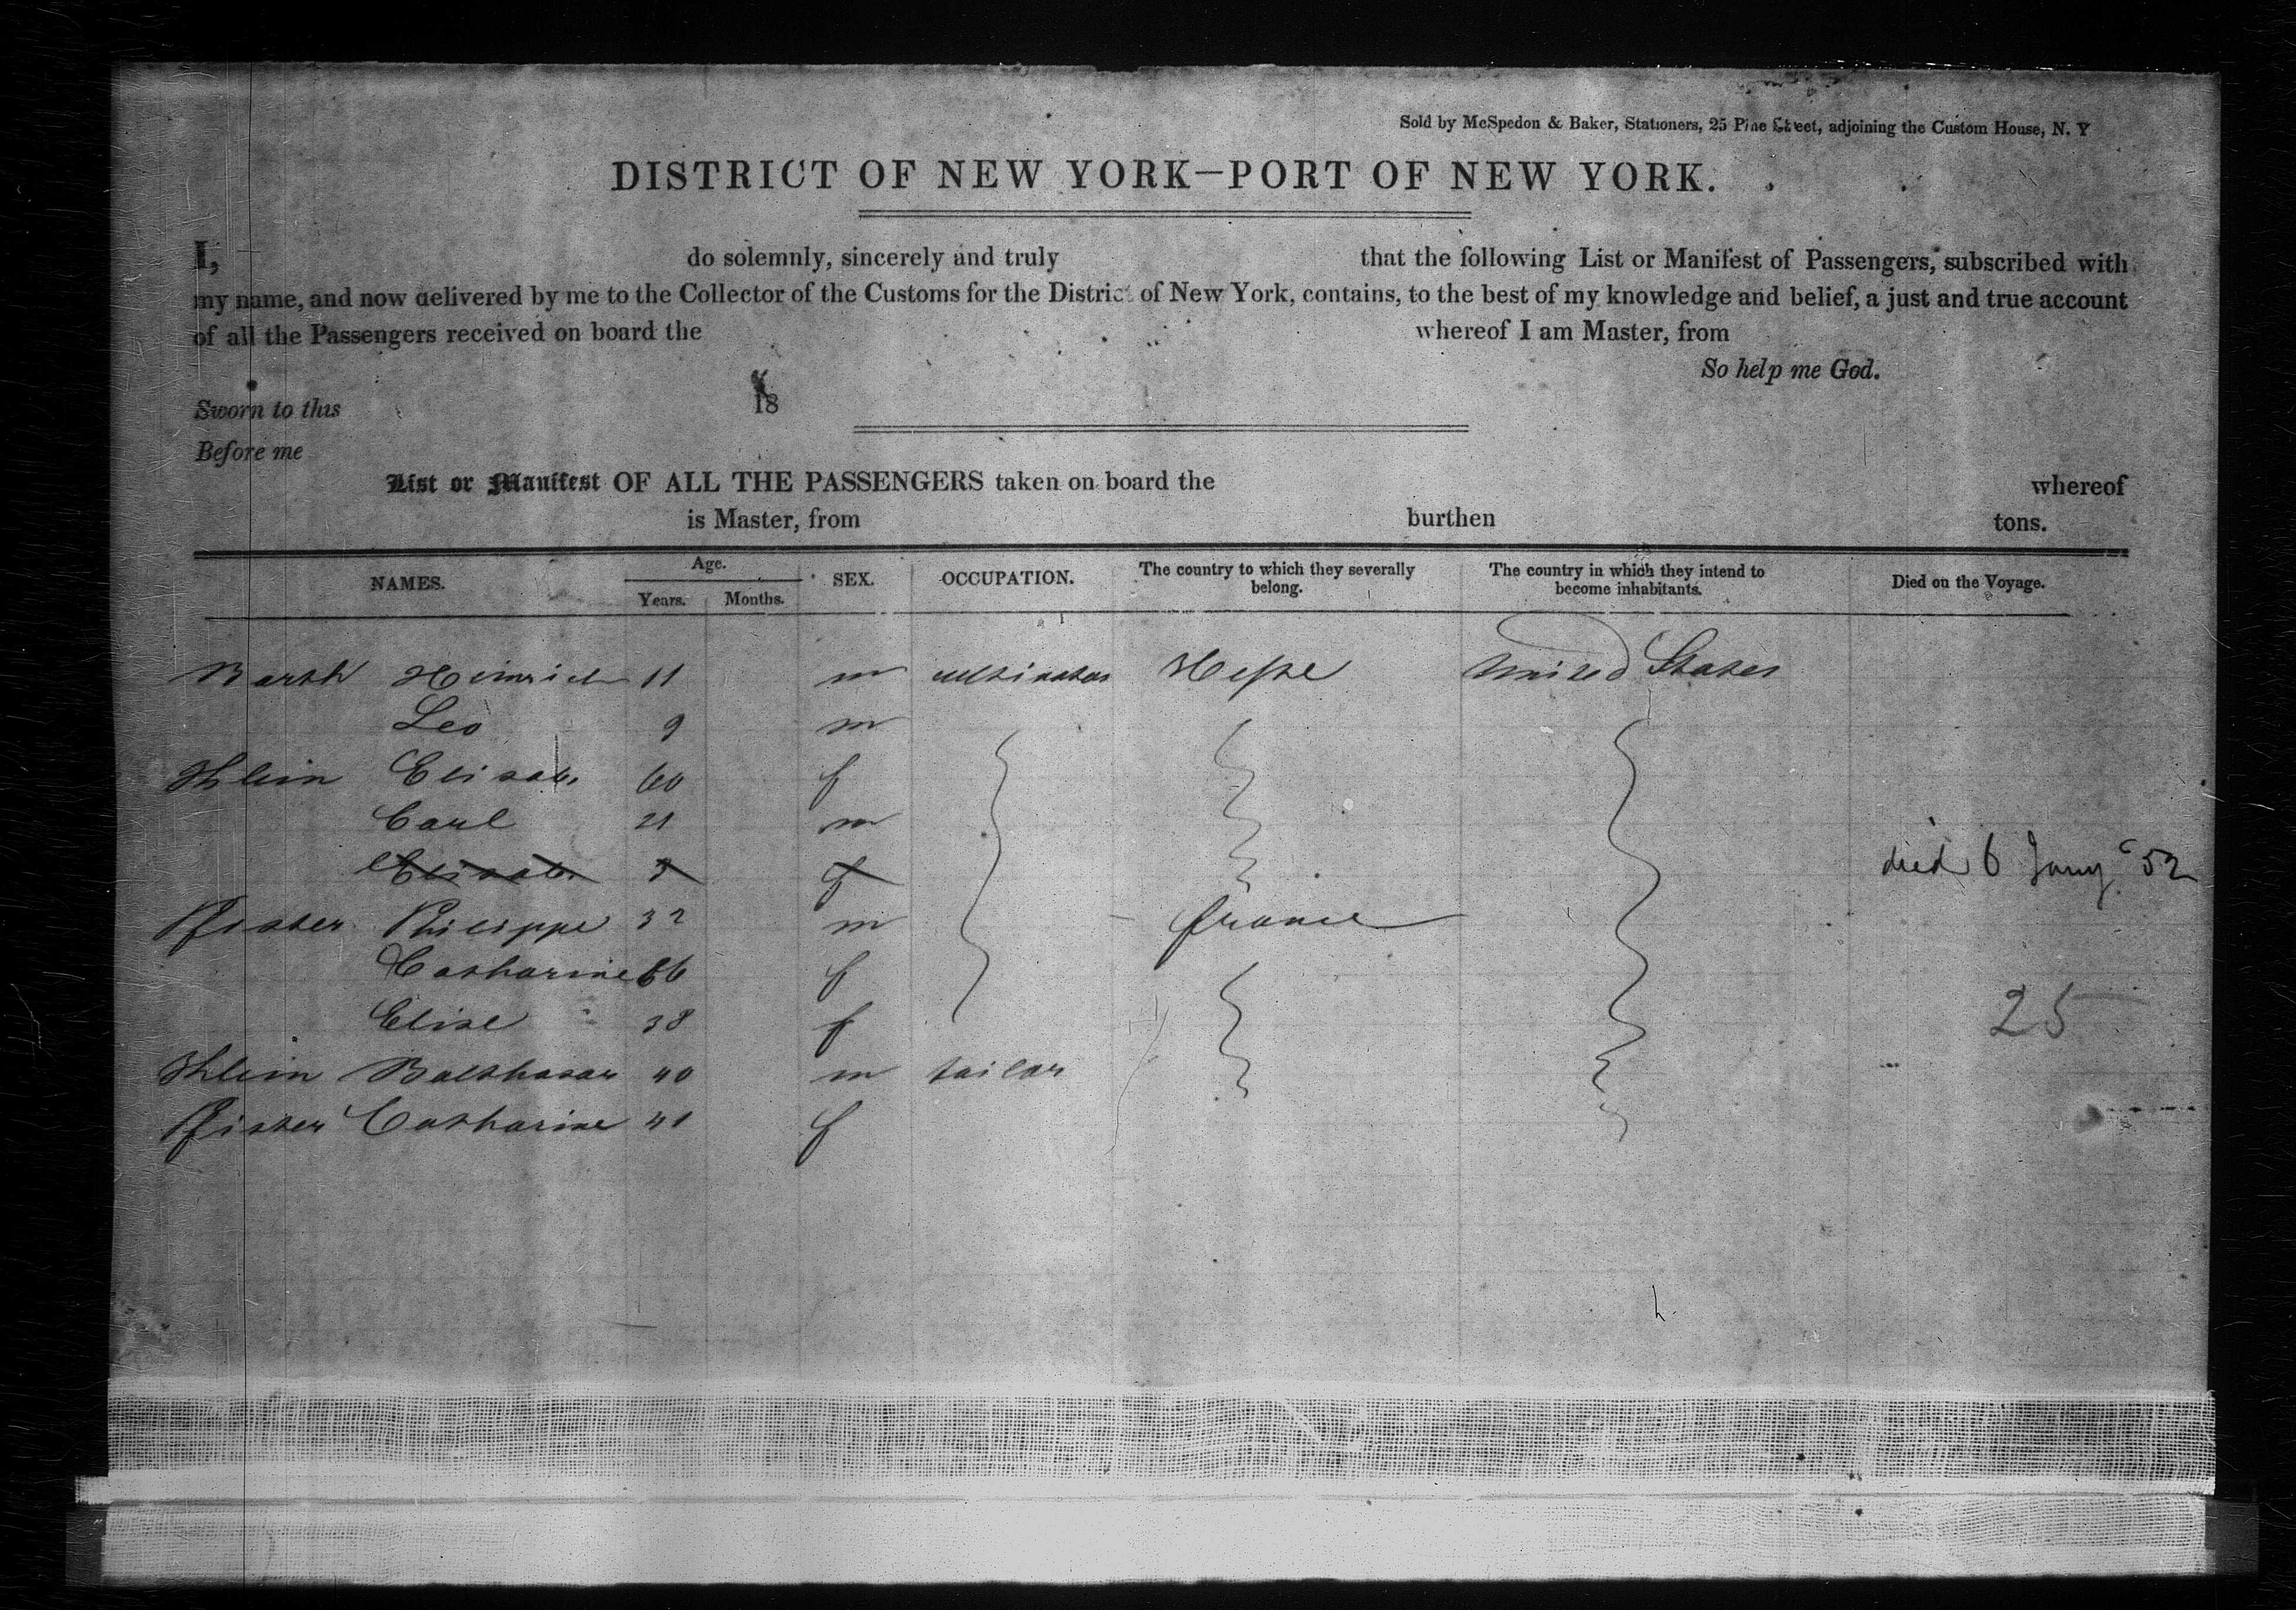 Sold by McSpedon & Baker, Stationers, 25 Pine Street, adjoining the Custom House, N. Y
DISTRICT OF NEW YORK—PORT OF NEW YORK.
I, do solemnly, sincerely and truly that the following List or Manifest of Passengers, subscribed with
my name, and now delivered by me to the Collector of the Customs for the District of New York, contains, to the best of my knowledge and belief, a just and true account
of all the Passengers received on board the whereof I am Master, from
So help me God.
Sworn to this 18
Before me
List or Manifest OF ALL THE PASSENGERS taken on board the whereof
is Master, from burthen tons.
NAMES. Age. Years. Months. SEX. OCCUPATION. The country to which they severally belong. The country in which they intend to become inhabitants. Died on the Voyage.
Barth Heinrich 11 m cultivator Hesse United States
Leo 9 m
Klein Elisab. 60 f
Carl 21 m
Elisab. f died 6 Jany 52
Pfister Philippe 32 m france
Catharine 66 f
Elise 38 f 25
Klein Balthasar 40 m tailor
Pfister Catharine 41 f